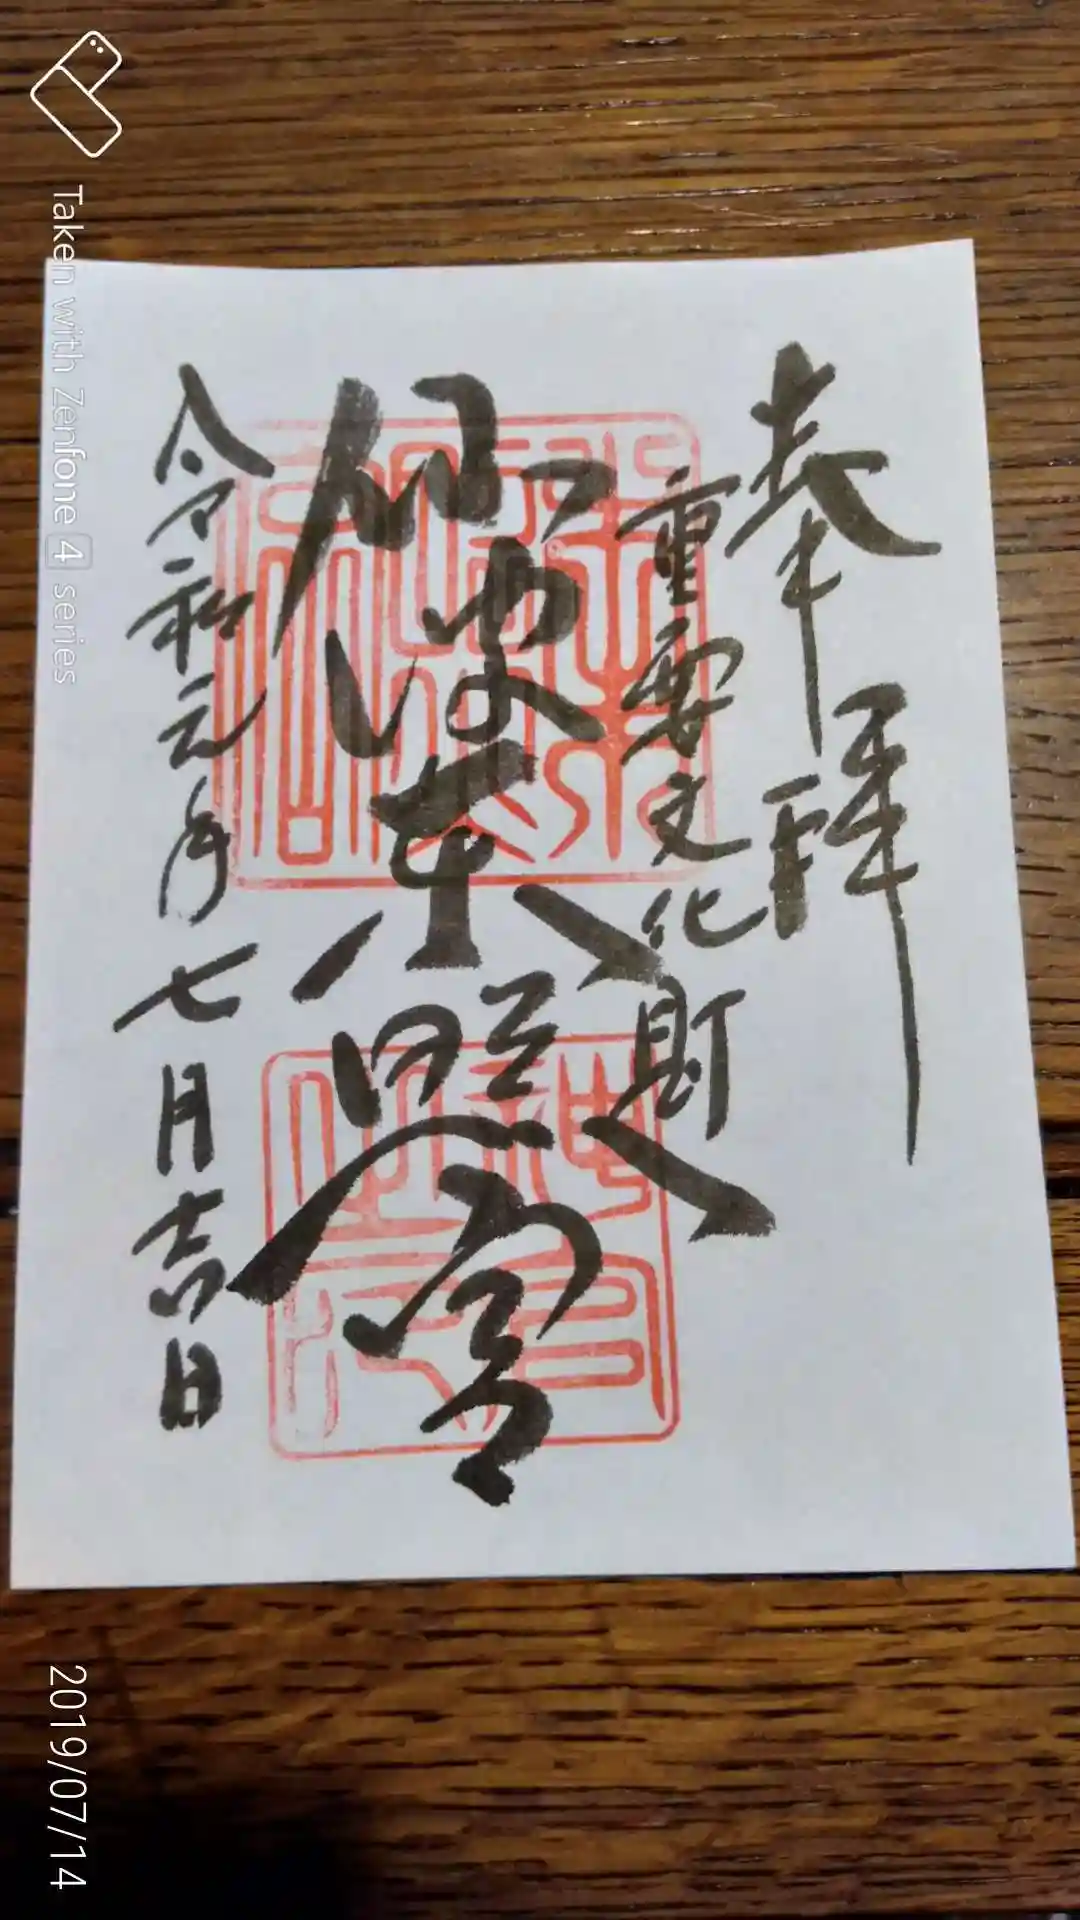 奉拝
重要文化財
仙波東照宮
令和元年七月吉日
Taken with Zenfone 4 series
2019/07/14